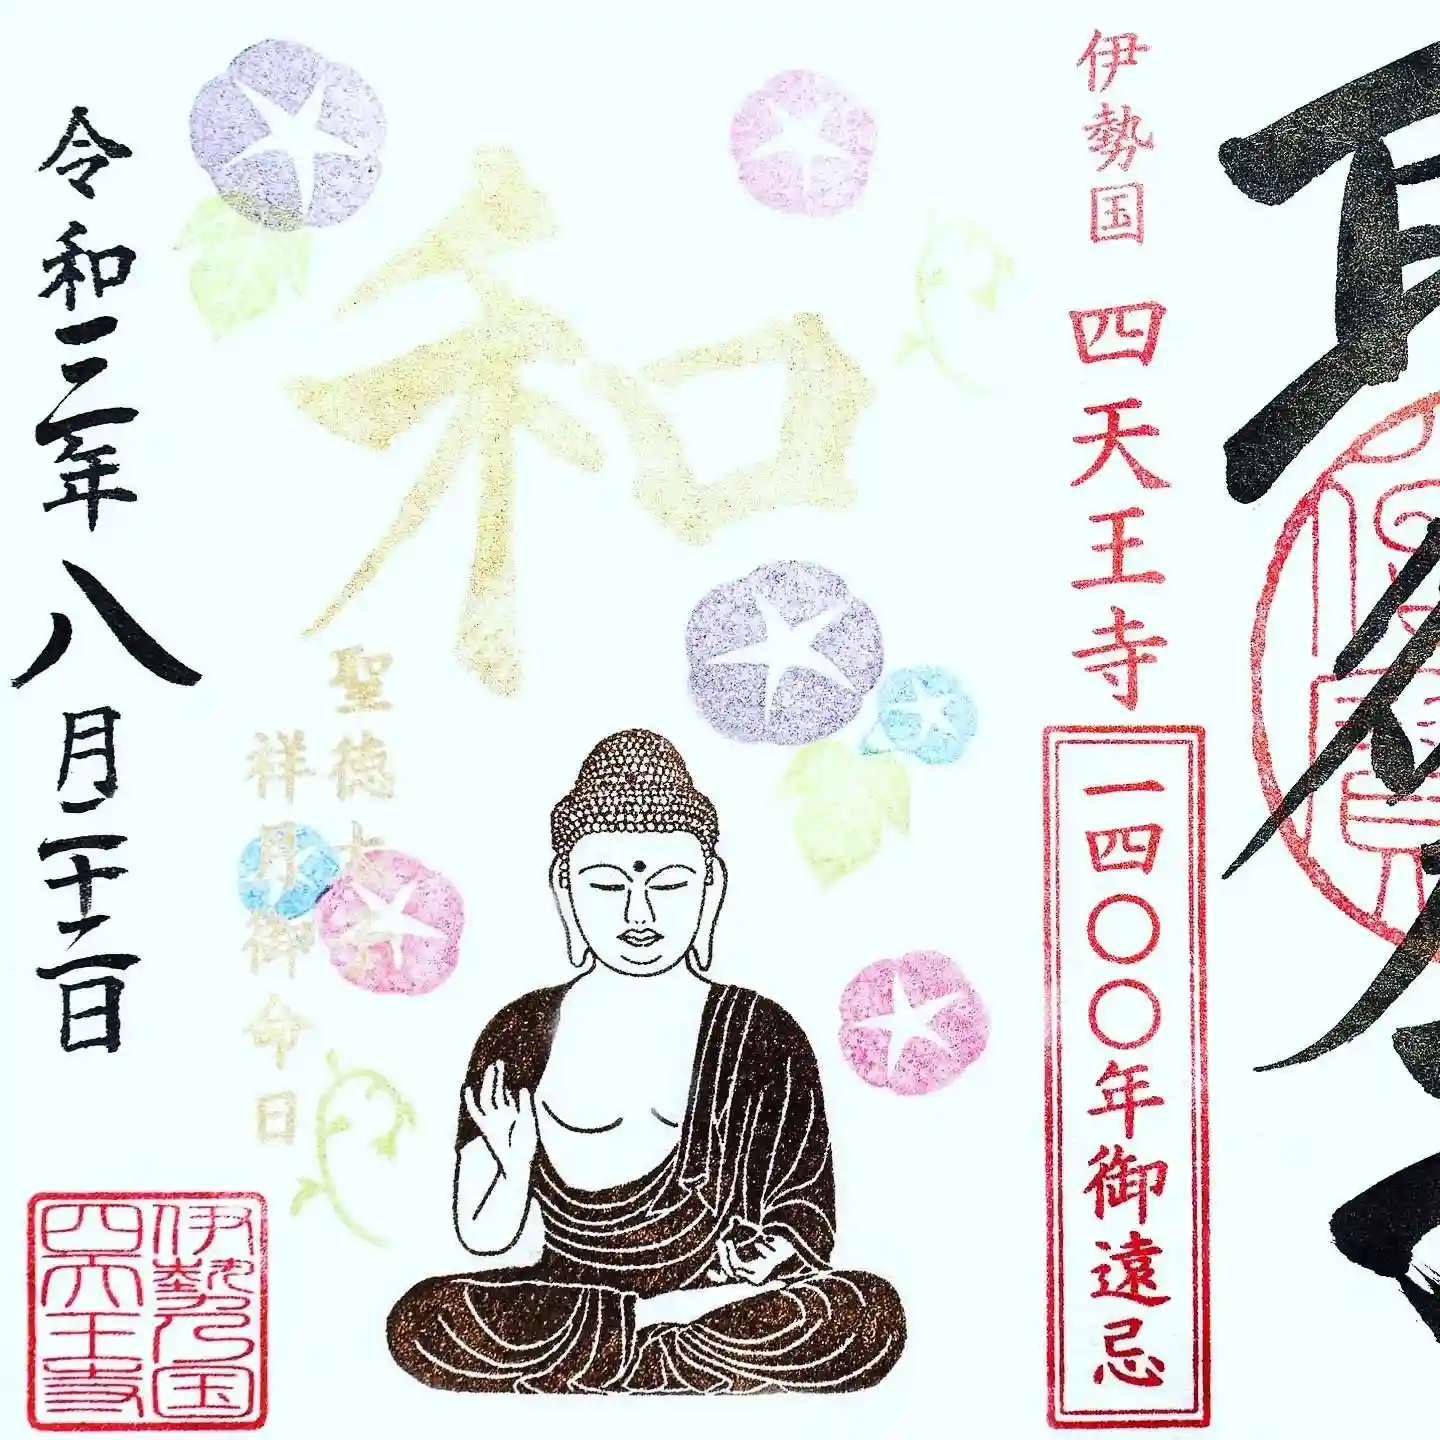 伊勢国 四天王寺
一四〇〇年御遠忌
和
聖徳太子
祥月御命日
令和三年八月二十二日
伊勢乃国
四天王寺